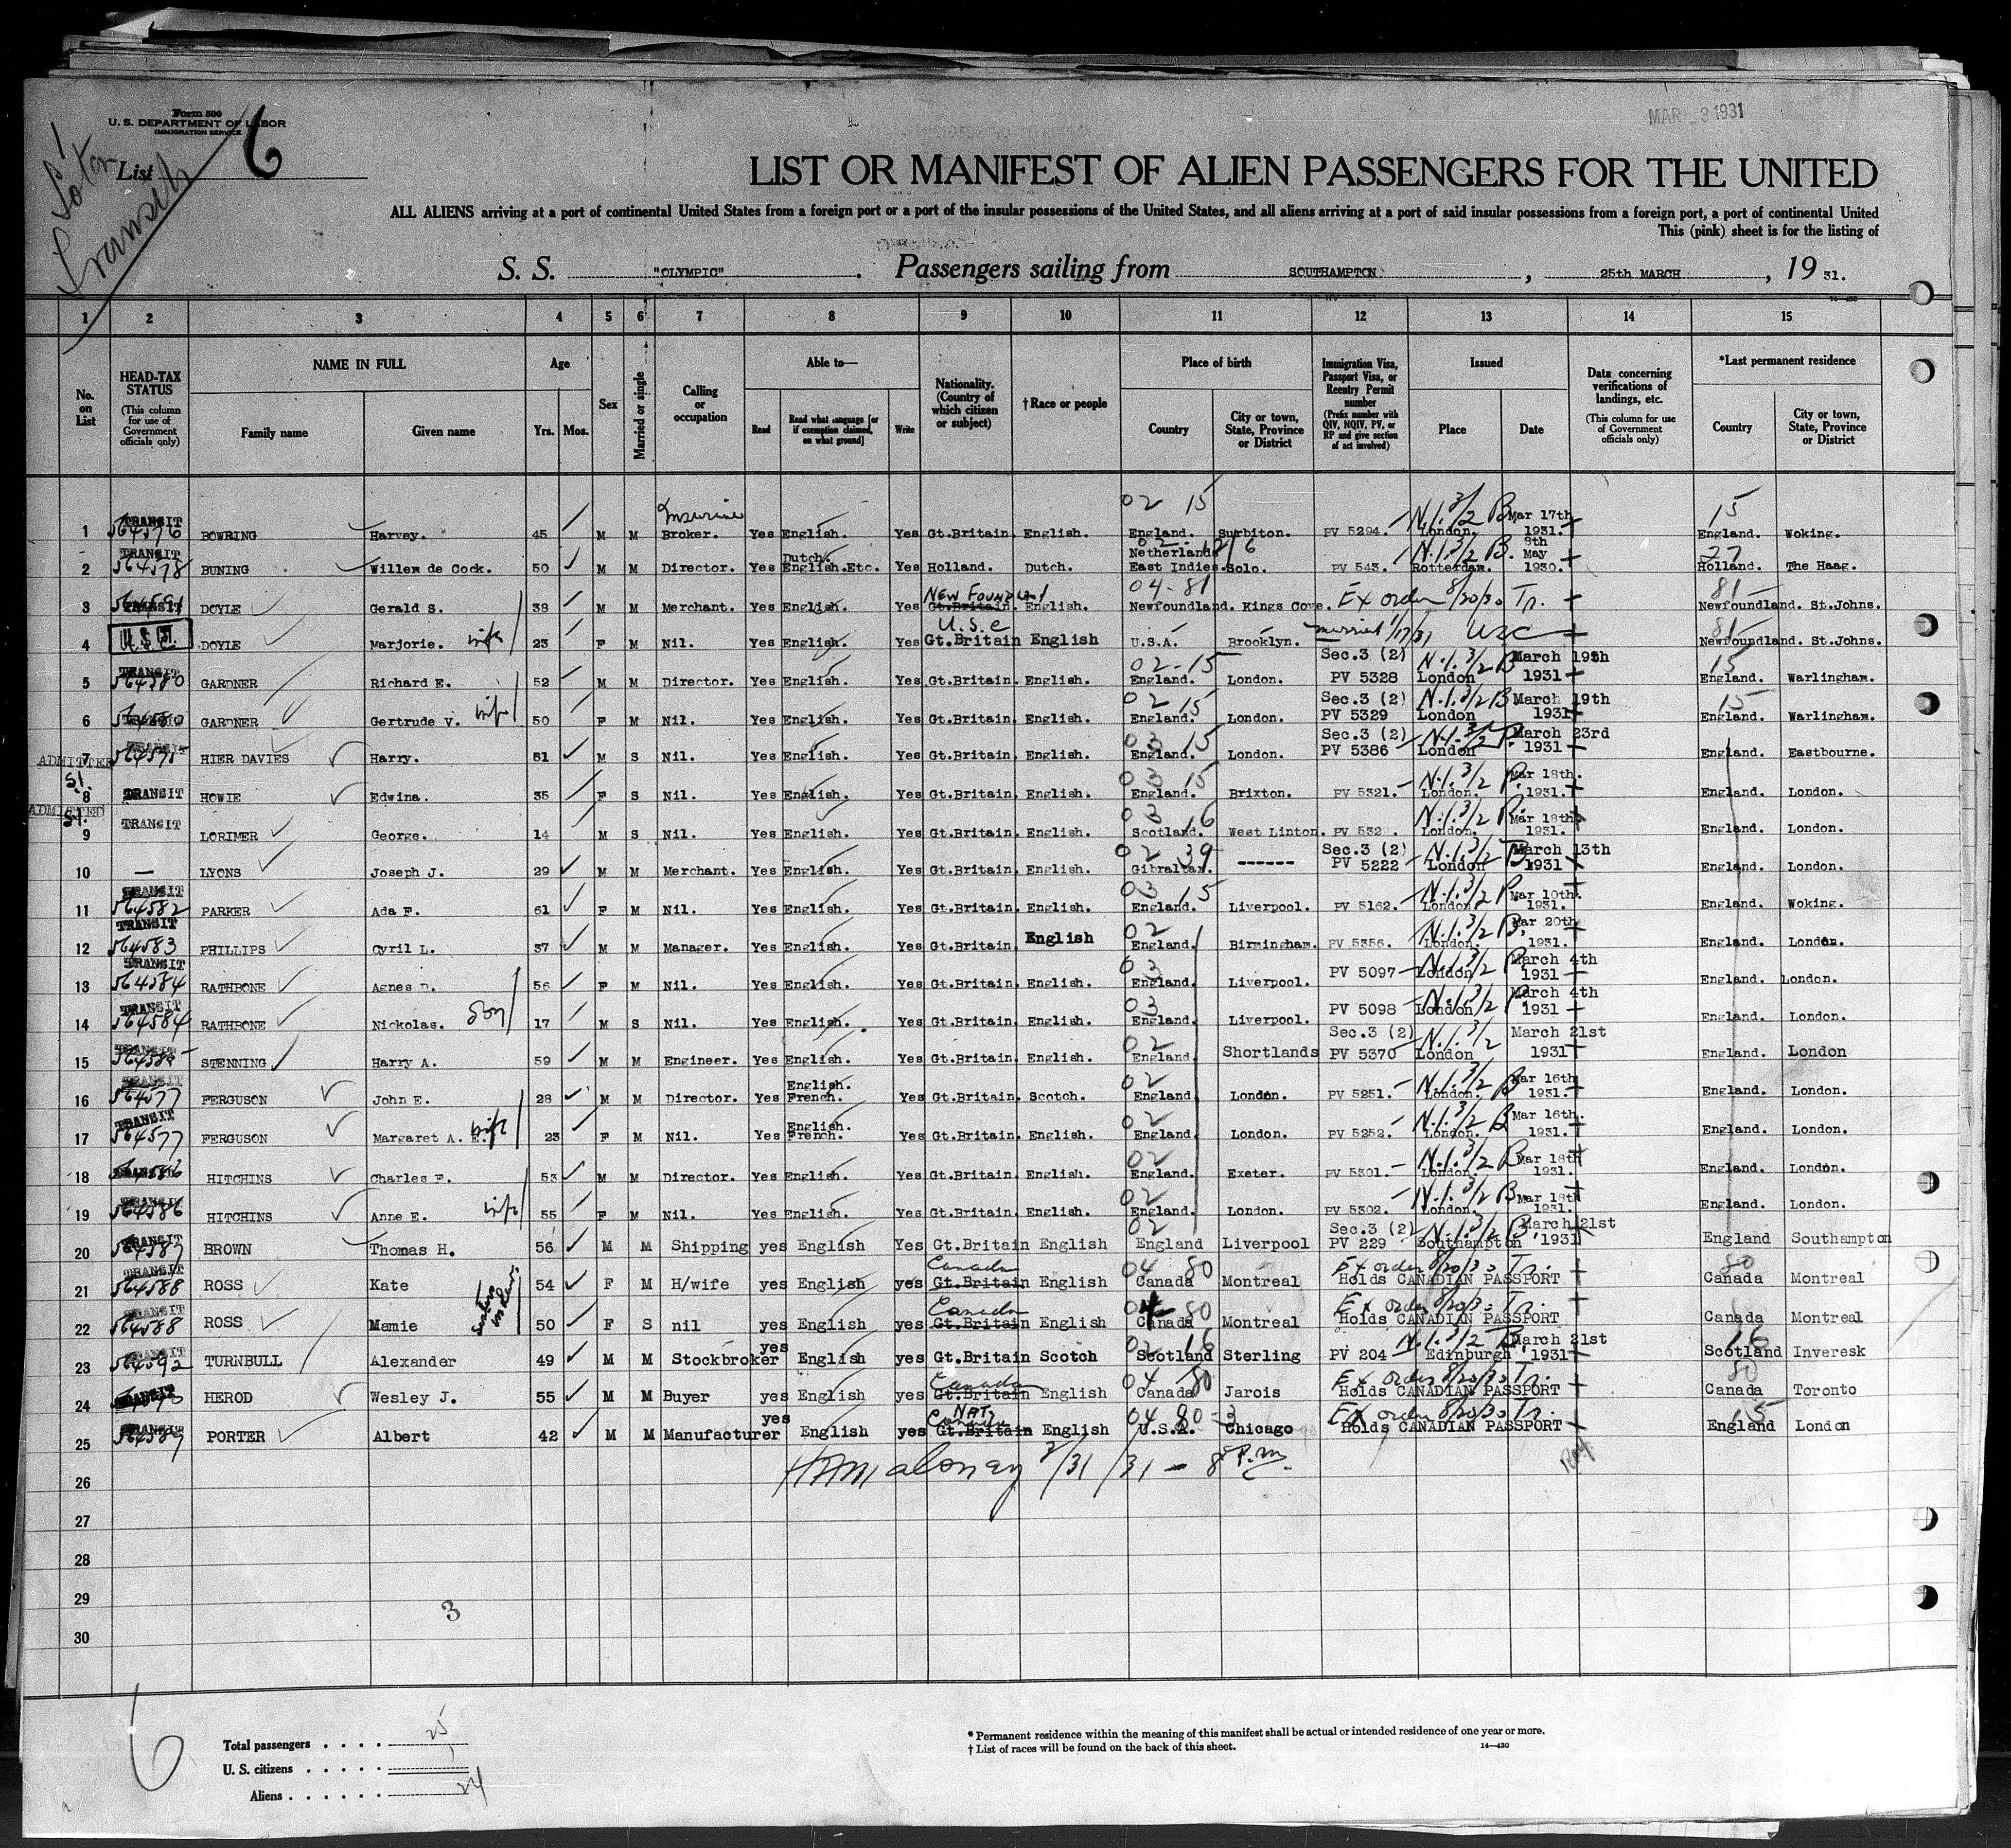 Form 500
U. S. DEPARTMENT OF LABOR
IMMIGRATION SERVICE
List 6
MAR 31 1931
LIST OR MANIFEST OF ALIEN PASSENGERS FOR THE UNITED
ALL ALIENS arriving at a port of continental United States from a foreign port or a port of the insular possessions of the United States, and all aliens arriving at a port of said insular possessions from a foreign port, a port of continental United
This (pink) sheet is for the listing of
S. S. "OLYMPIC" . Passengers sailing from SOUTHAMPTON , 25th MARCH , 19 31.
1 2 3 4 5 6 7 8 9 10 11 12 13 14 15
No. on List
HEAD-TAX STATUS (This column for use of Government officials only)
NAME IN FULL Family name Given name
Age Yrs. Mos.
Sex
Married or single
Calling or occupation
Able to— Read Read what language [or if exemption claimed, on what ground] Write
Nationality. (Country of which citizen or subject)
†Race or people
Place of birth Country City or town, State, Province or District
Immigration Visa, Passport Visa, or Reentry Permit number (Prefix number with QIV, NQIV, PV, or RP and give section of act involved)
Issued Place Date
Data concerning verifications of landings, etc. (This column for use of Government officials only)
*Last permanent residence Country City or town, State, Province or District
1 TRANSIT 564576 BOWRING Harvey. 45 M M Broker. Yes English. Yes Gt.Britain. English. 02 15 England. Surbiton. PV 5294. N.I. 3/2 B London. Mar 17th 1931. 15 England. Woking.
2 TRANSIT 564578 BUNING Willem de Cock. 50 M M Director. Yes Dutch. English.Etc. Yes Holland. Dutch. Netherlands East Indies. Solo. PV 543. N.I. 3/2 B. Rotterdam. 8th May 1930. 77 Holland. The Haag.
3 TRANSIT DOYLE Gerald S. 38 M M Merchant. Yes English. Yes NEW FOUNDLAND Gt.Britain. English. 04-81 Newfoundland. Kings Cove. Ex order 8/20/30 Tr. 81 Newfoundland. St.Johns.
4 U.S.C. DOYLE Marjorie. wife 23 F M Nil. Yes English. Yes U.S.C Gt.Britain English U.S.A. Brooklyn. married 1/17/31 USC 81 Newfoundland. St.Johns.
5 TRANSIT 564580 GARDNER Richard E. 52 M M Director. Yes English. Yes Gt.Britain. English. 02-15 England. London. Sec.3 (2) PV 5328 N.I. 3/2 B London March 19th 1931 15 England. Warlingham.
6 564580 GARDNER Gertrude V. wife 50 F M Nil. Yes English. Yes Gt.Britain. English. 02 15 England. London. Sec.3 (2) PV 5329 N.I. 3/2 B London March 19th 1931 15 England. Warlingham.
7 ADMITTED TRANSIT 564575 HIER DAVIES Harry. 51 M S Nil. Yes English. Yes Gt.Britain. English. 03 15 England. London. Sec.3 (2) PV 5386 N.I. 3/2 P. London March 23rd 1931 England. Eastbourne.
8 S.I. TRANSIT HOWIE Edwina. 35 F S Nil. Yes English. Yes Gt.Britain. English. 03 15 England. Brixton. PV 5321. N.I. 3/2 P. London. Mar 18th. 1931. England. London.
9 ADMITTED S.I. TRANSIT LORIMER George. 14 M S Nil. Yes English. Yes Gt.Britain. English. 03 16 Scotland. West Linton. PV 532 N.I. 3/2 P London. Mar 18th. 1931. England. London.
10 — LYONS Joseph J. 29 M M Merchant. Yes English. Yes Gt.Britain. English. 02 39 Gibraltar. ------ Sec.3 (2) PV 5222 N.I. 3/2 B London March 13th 1931 England. London.
11 TRANSIT 564582 PARKER Ada F. 61 F M Nil. Yes English. Yes Gt.Britain. English. 03 15 England. Liverpool. PV 5162. N.I. 3/2 P. London. Mar 10th. 1931. England. Woking.
12 TRANSIT 564583 PHILLIPS Cyril L. 37 M M Manager. Yes English. Yes Gt.Britain. English 02 England. Birmingham. PV 5356. N.I. 3/2 B. London. Mar 20th. 1931. England. London.
13 TRANSIT 564584 RATHBONE Agnes D. 56 F M Nil. Yes English. Yes Gt.Britain. English. 03 England. Liverpool. PV 5097 N.I. 3/2 P London March 4th 1931 England. London.
14 TRANSIT 564584 RATHBONE Nickolas. Son 17 M S Nil. Yes English. Yes Gt.Britain. English. 03 England. Liverpool. PV 5098 N.I. 3/2 P London March 4th 1931 England. London.
15 TRANSIT 564585 STENNING Harry A. 59 M M Engineer. Yes English. Yes Gt.Britain. English. 02 England. Shortlands Sec.3 (2) PV 5370 N.I. 3/2 London March 21st 1931 England. London
16 TRANSIT 564577 FERGUSON John E. 28 M M Director. Yes English. French. Yes Gt.Britain. Scotch. 02 England London. PV 5251. N.I. 3/2 B London. Mar 16th. 1931. England. London.
17 TRANSIT 564577 FERGUSON Margaret A. E. wife 23 F M Nil. Yes English. French. Yes Gt.Britain. English. 02 England London. PV 5252. N.I. 3/2 B London. Mar 16th. 1931. England. London.
18 564586 HITCHINS Charles F. 53 M M Director. Yes English. Yes Gt.Britain. English. 02 England. Exeter. PV 5301. N.I. 3/2 B London. Mar 18th 1931. England. London.
19 TRANSIT 564586 HITCHINS Anne E. wife 55 F M Nil. Yes English. Yes Gt.Britain. English. 02 England. London. PV 5302. N.I. 3/2 B London. Mar 18th 1931. England. London.
20 TRANSIT 564587 BROWN Thomas H. 56 M M Shipping yes English Yes Gt.Britain English 02 England Liverpool Sec.3 (2) PV 229 N.I. 3/2 B. Southampton March 21st 1931 England Southampton
21 TRANSIT 564588 ROSS Kate 54 F M H/wife yes English yes Canada Gt.Britain English 04 80 Canada Montreal Ex order 8/20/30 Tr. Holds CANADIAN PASSPORT 80 Canada Montreal
22 TRANSIT 564588 ROSS Mamie 50 F S nil yes English yes Canada Gt.Britain English 04 80 Canada Montreal Ex order 8/20/30 Tr. Holds CANADIAN PASSPORT Canada Montreal
23 TRANSIT 564592 TURNBULL Alexander 49 M M Stockbroker yes English yes Gt.Britain Scotch 02 16 Scotland Sterling PV 204 N.I. 3/2 B. Edinburgh March 21st 1931 16 Scotland Inveresk
24 TRANSIT HEROD Wesley J. 55 M M Buyer yes English yes Canada Gt.Britain English 04 80 Canada Jarois Ex order 8/20/30 Tr. Holds CANADIAN PASSPORT 80 Canada Toronto
25 TRANSIT 564589 PORTER Albert 42 M M Manufacturer yes English yes NAT. Canada Gt.Britain English 04 80-3 U.S.A. Chicago Ex order 8/20/30 Tr. Holds CANADIAN PASSPORT 15 England London
26 3/31/31 - 8 P.m.
27
28
29
30
3
6
Total passengers . . . . 25
U. S. citizens . . . . . 1
Aliens . . . . . . 24
* Permanent residence within the meaning of this manifest shall be actual or intended residence of one year or more.
† List of races will be found on the back of this sheet. 14—430